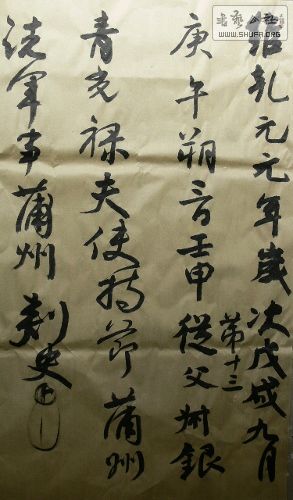 書藝公社
WWW.SHUFA.ORG
維乾元元年歲次戊戌九月
庚午朔三日壬申從父叔銀
第十三
青光祿夫使持節蒲州
諸軍事蒲州刺史